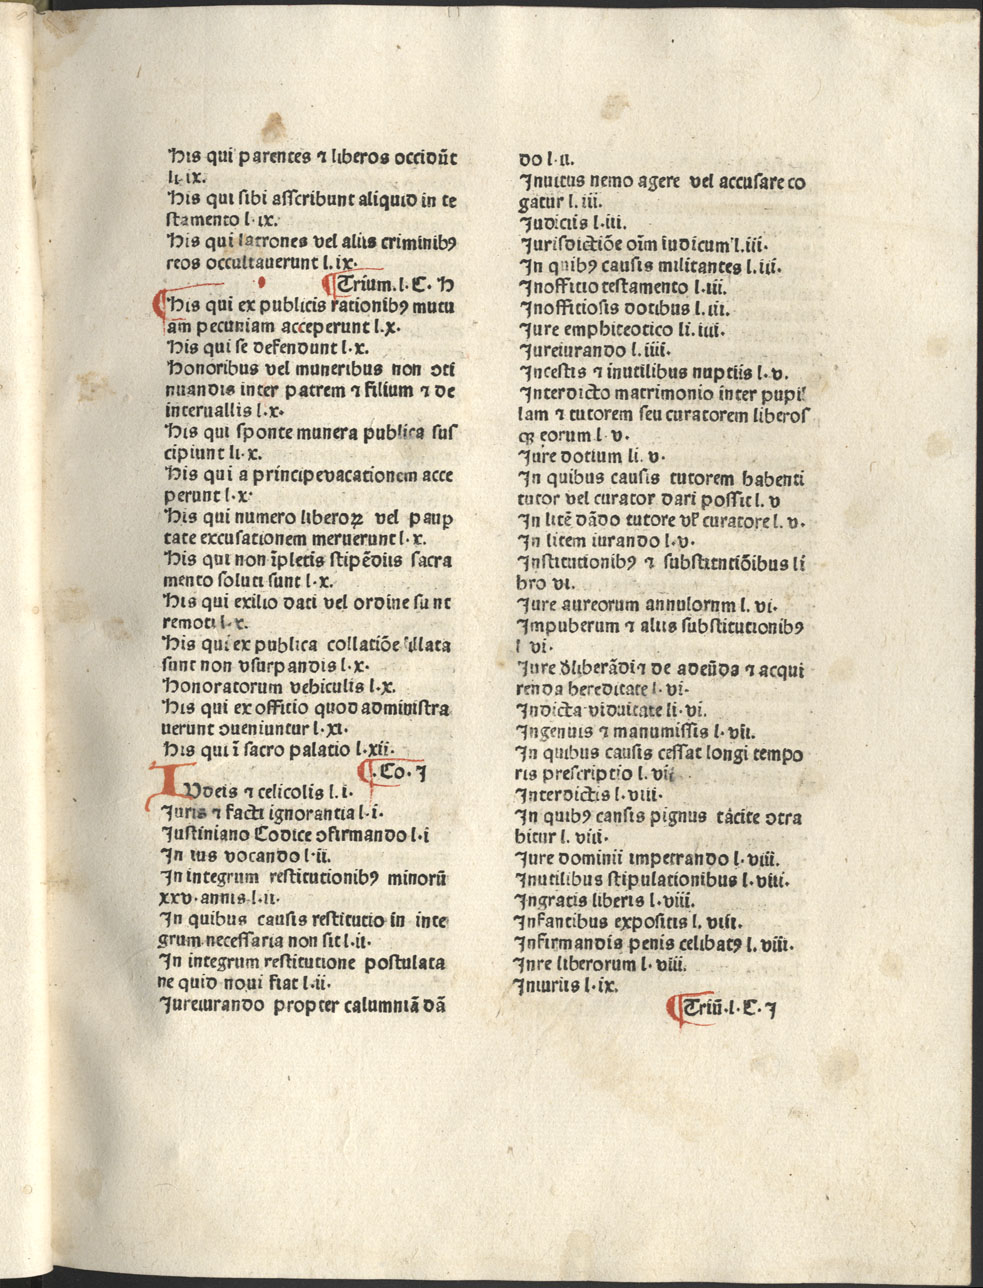 His qui parentes ⁊ liberos occidūt
li. ix.
His qui sibi asscribunt aliquid in te
stamento l. ix.
His qui latrones vel aliis criminibꝰ
reos occultauerunt l. ix.
¶ Trium. l. C. H
¶ His qui ex publicis rationibꝰ mutu
am pecuniam acceperunt l. x.
His qui se defendunt l. x.
Honoribus vel muneribus non ↄti
nuandis inter patrem ⁊ filium ⁊ de
interuallis l. x.
His qui sponte munera publica sus
cipiunt li. x.
His qui a principe vacationem acce
perunt l. x.
His qui numero liberoꝝ vel paup
tate excusationem meruerunt l. x.
His qui non īpletis stipēdiis sacra
mento soluti sunt l. x.
His qui exilio dati vel ordine sunt
remoti l. x.
His qui ex publica collatiōe illata
sunt non vsurpandis l. x.
Honoratorum vehiculis l. x.
His qui ex offitio quod administra
uerunt ↄueniuntur l. xi.
His qui ī sacro palatio l. xii.
¶ .Co. I
IVdeis ⁊ celicolis l. i.
Iuris ⁊ facti ignorantia l. i.
Iustiniano Codice ↄfirmando l. i
In ius vocando l. ii.
In integrum restitutionibꝰ minorū
xxv. annis. l. ii.
In quibus causis restitutio in inte
grum necessaria non sit l. ii.
In integrum restitutione postulata
ne quid noui fiat l. ii.
Iureiurando propter calumniā dā
do l. ii.
Inuitus nemo agere vel accusare co
gatur l. iii.
Iudiciis l. iii.
Iurisdictiōe oīm iudicum l. iii.
In quibꝰ causis militantes l. iii.
Inofficio testamento l. iii.
Inoffitiosis dotibus l. iii.
Iure emphiteotico li. iiii.
Iureiurando l. iiii.
Incestis ⁊ inutilibus nuptiis l. v.
Interdicto matrimonio inter pupil
lam ⁊ tutorem seu curatorem liberos
qꝫ eorum l. v.
Iure dotium li. v.
In quibus causis tutorem habenti
tutor vel curator dari possit l. v
In litē dādo tutore vƚ curatore l. v.
In litem iurando l. v.
Institutionibꝰ ⁊ substitntiōibus li
bro vi.
Iure aureorum annulornm l. vi.
Impuberum ⁊ aliis substitutionibꝰ
l vi.
Iure đliberādi ⁊ de adeūda ⁊ acqui
renda hereditate l. vi.
Indicta viduitate li. vi.
Ingenuis ⁊ manumissis l. vii.
In quibus causis cessat longi tempo
ris prescriptio l. vii
Interdictis l. viii.
In quibꝰ cansis pignus tacite ↄtra
hitur l. viii.
Iure dominii impetrando l. viii.
Inutilibus stipulationibus l. viii.
Ingratis liberis l. viii.
Infantibus expositis l. viii.
Infirmandis penis celibatꝰ l. viii.
Inre liberorum l. viii.
Iniuriis l. ix.
¶ Triū. l. C. I